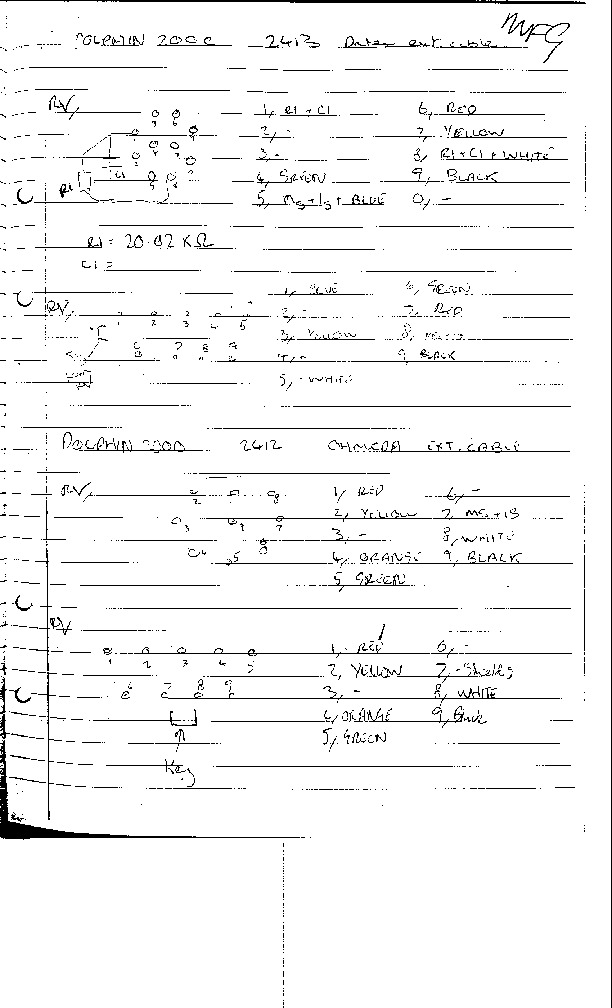 MFG
DOLPHIN 2000 2413 Datex ext cable
RV,
1, R1 + C1 6, RED
2, - 7, YELLOW
3, - 8, R1 + C1 + WHITE
4, GREEN 9, BLACK
5, + BLUE 0, -
R1
C1
R1 = 20.02 KΩ
C1 =
RV,
1, BLUE 6, GREEN
2, - 7, RED
3, YELLOW 8,
4, - 9, BLACK
5, - WHITE
1 2 3 4 5
DOLPHIN 2000 2412 OHMEDA EXT. CABLE
RV,
1, RED 6, -
2, YELLOW 7,
3, - 8, WHITE
4, ORANGE 9, BLACK
5, GREEN
RV
1, RED 6, -
2, YELLOW 7, - Shields
3, - 8, WHITE
4, ORANGE 9, Black
5, GREEN
1 2 3 4 5
6 7 8 9
Key